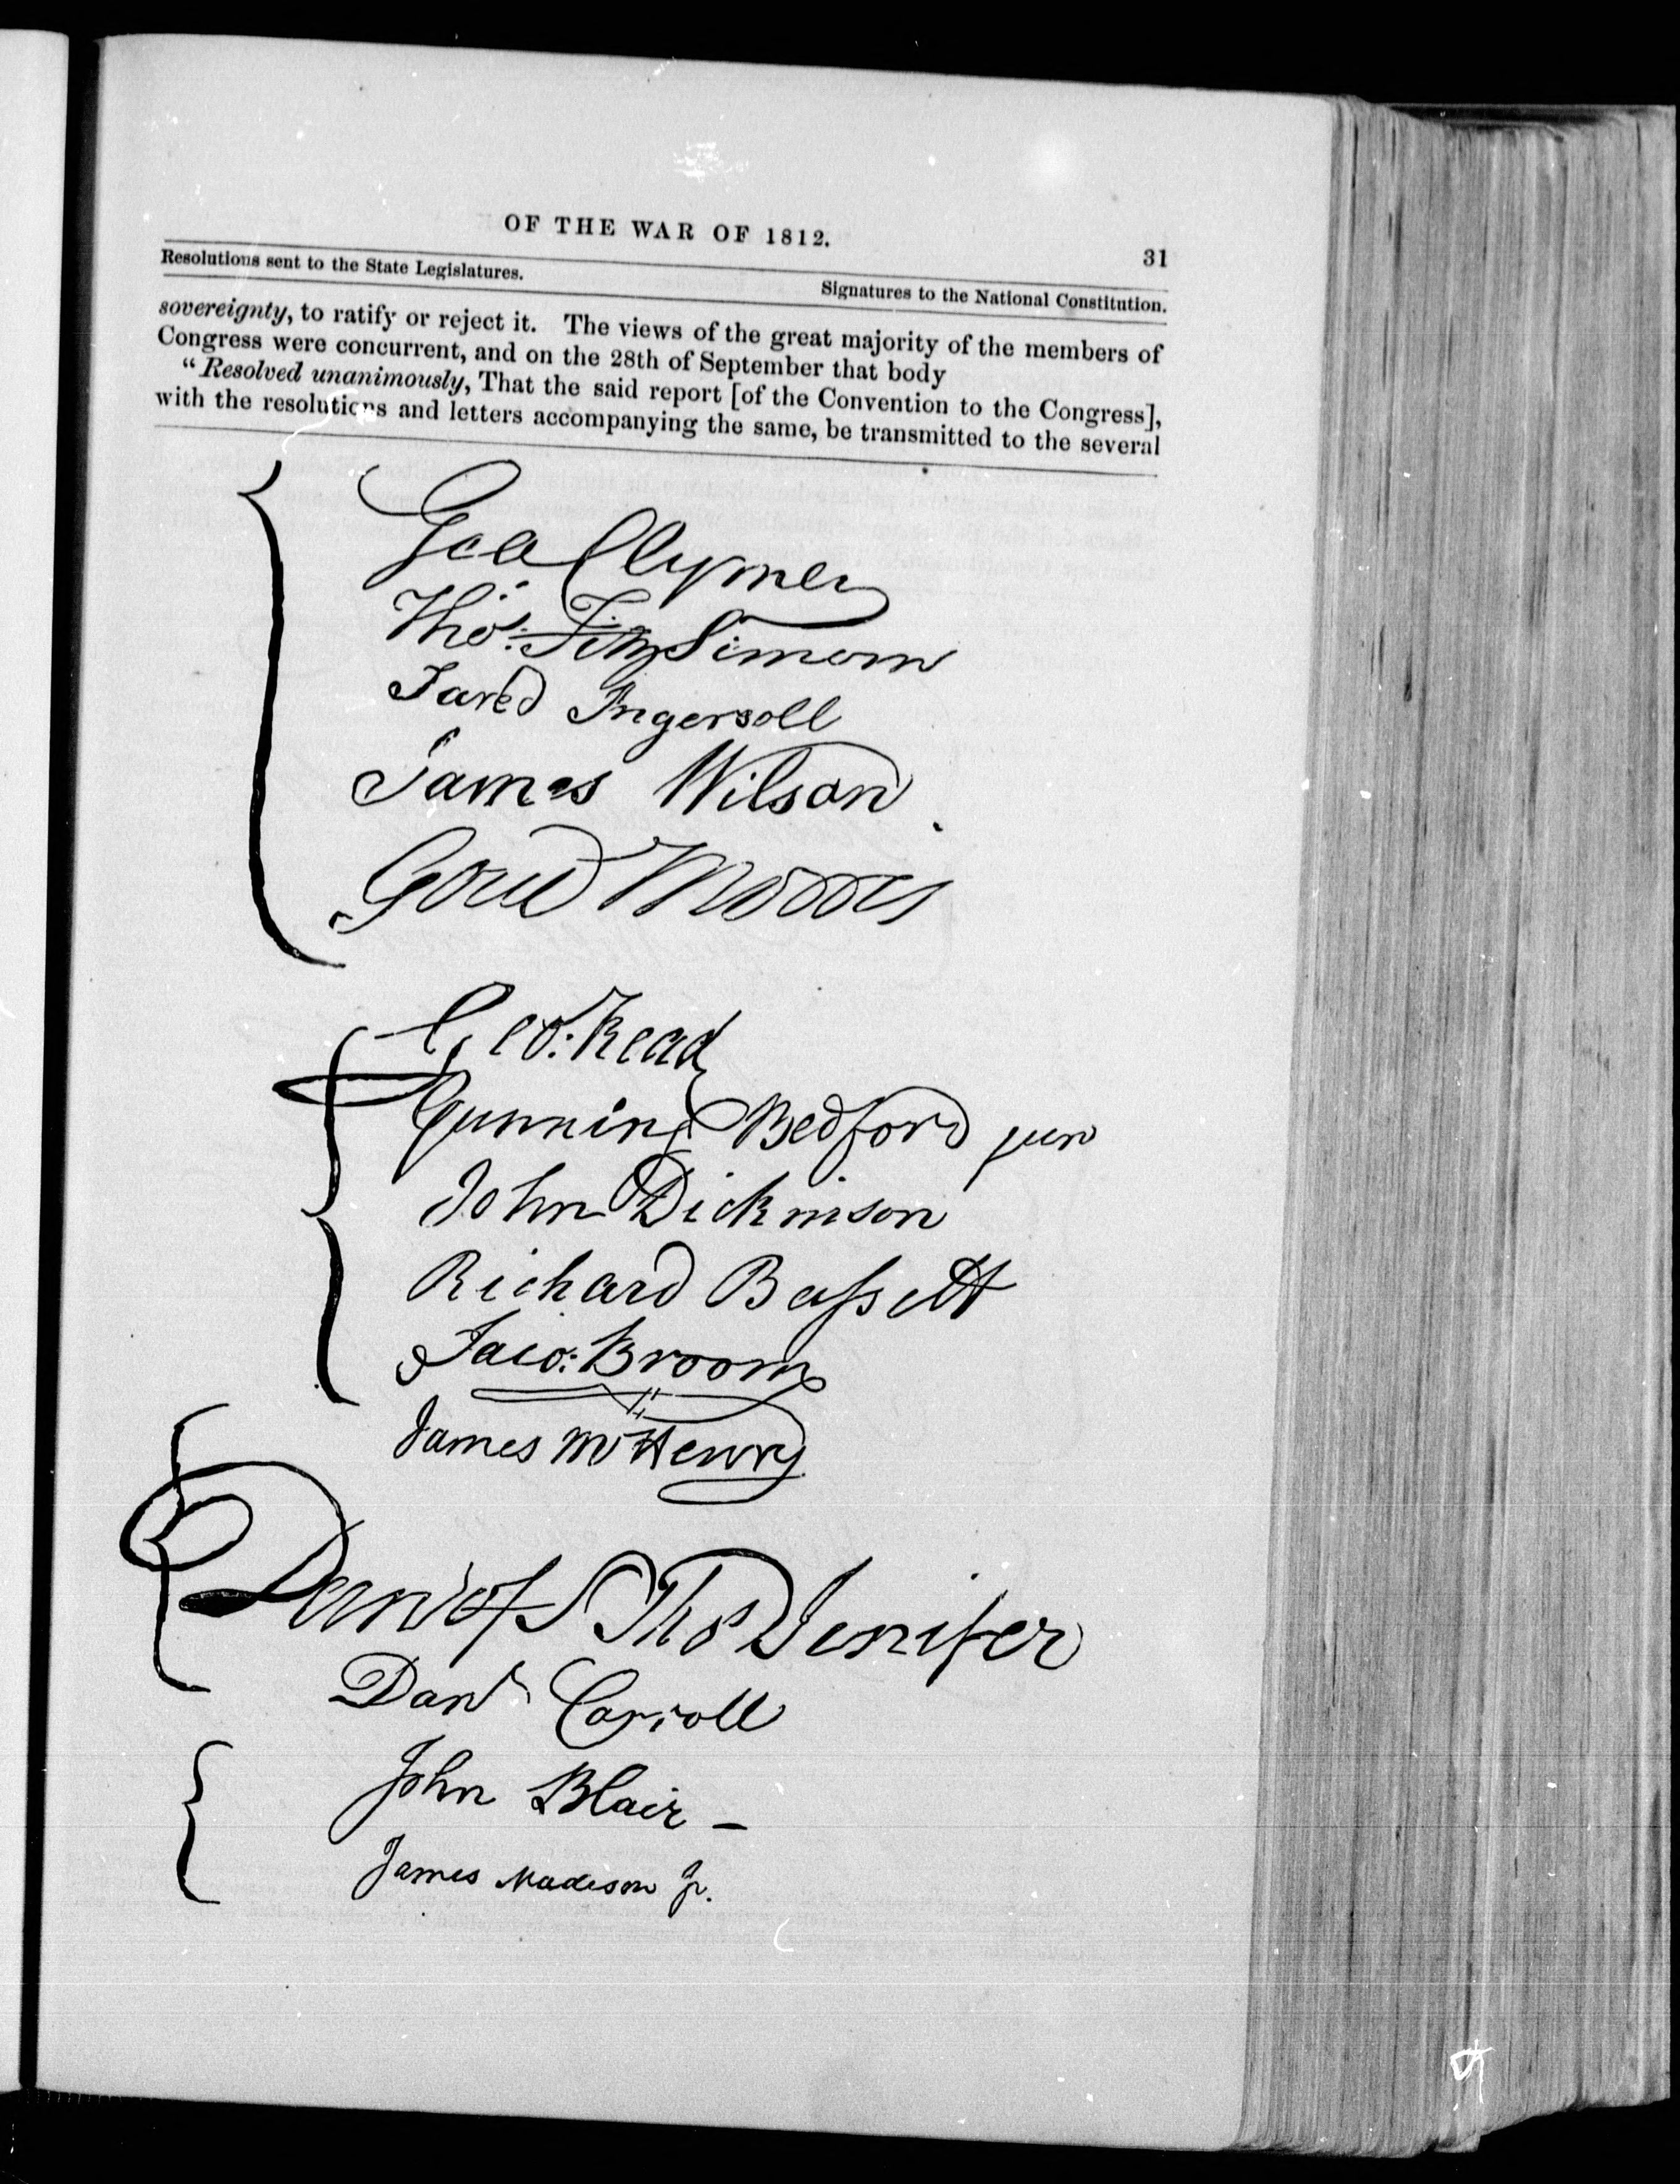 OF THE WAR OF 1812.
31
Resolutions sent to the State Legislatures.
Signatures to the National Constitution.
sovereignty, to ratify or reject it. The views of the great majority of the members of
Congress were concurrent, and on the 28th of September that body
“Resolved unanimously, That the said report [of the Convention to the Congress],
with the resolutions and letters accompanying the same, be transmitted to the several
Geo Clymer
Thos: FitzSimons
Jared Ingersoll
James Wilson.
Gouv Morris
Geo: Read
Gunning Bedford jun
John Dickinson
Richard Bassett
Jaco: Broom
James McHenry
Dan of St Thos Jenifer
Danl Carroll
John Blair –
James Madison Jr.